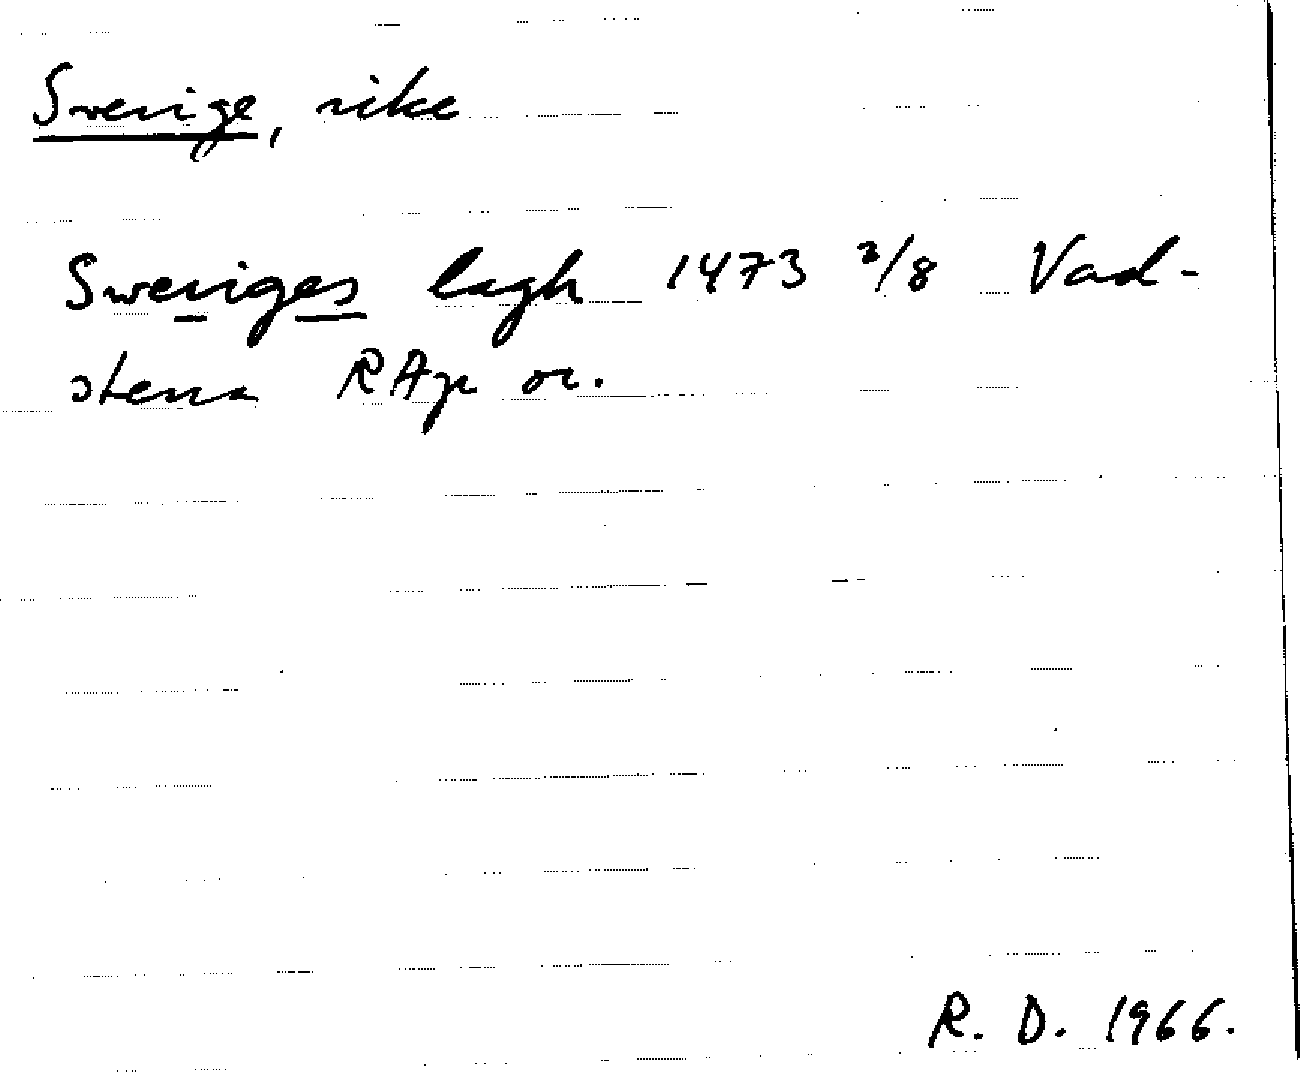 Sverige, rike
Sweriges lagh 1473 2/8 Vad-
stena RAp or.
R. D. 1966.